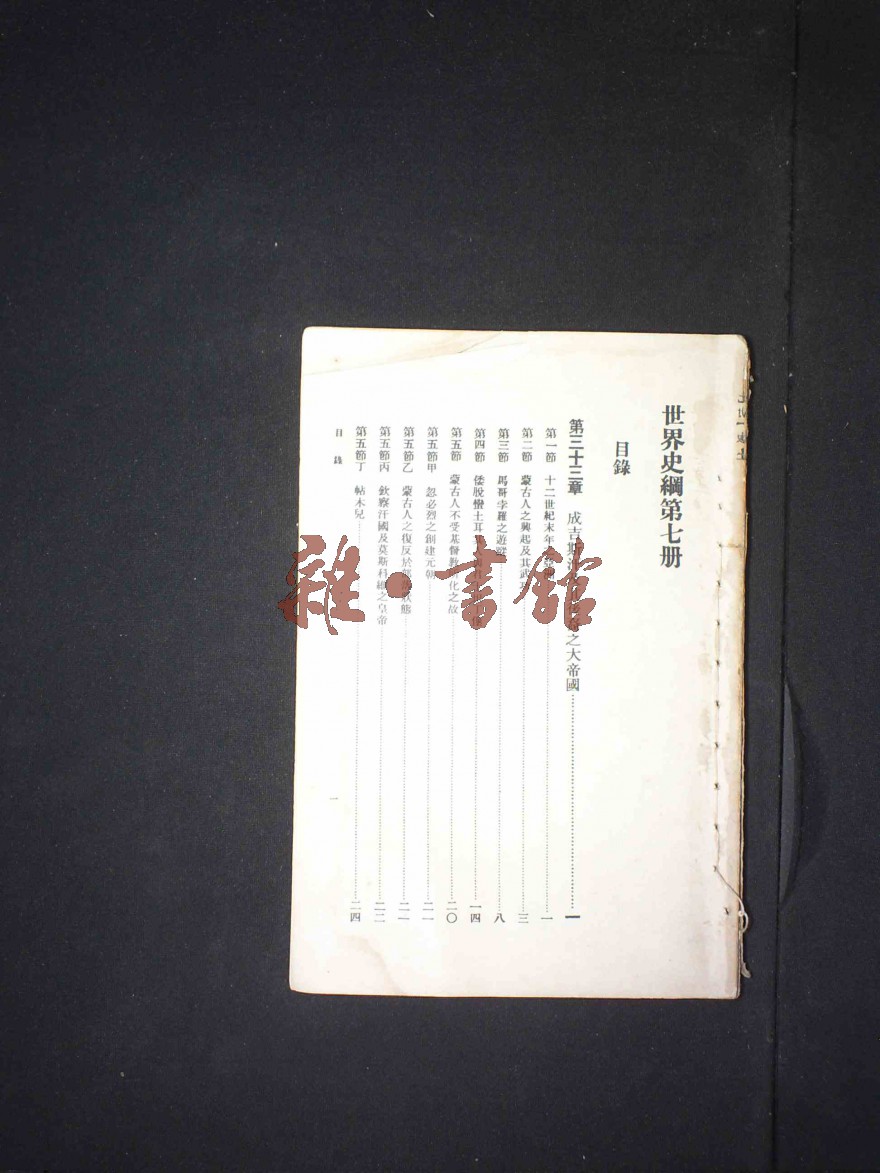 世界史綱第七册
目錄
第三十三章 成吉斯汗之大帝國……一
第一節 十二世紀末年……一
第二節 蒙古人之興起及其武……三
第三節 馬哥孛羅之遊蹤……八
第四節 倭脫蠻土耳……一四
第五節 蒙古人不受基督教所化之故……二〇
第五節甲 忽必烈之創建元朝……二一
第五節乙 蒙古人之復反於部落狀態……二一
第五節丙 欽察汗國及莫斯科維之皇帝……二二
第五節丁 帖木兒……二四
目錄
一
雜·書館